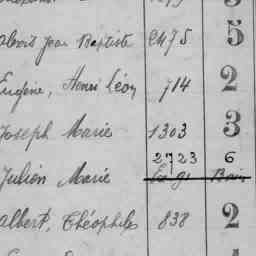 Jean Baptiste 2475 5
Eugène, Henri Léon 714 2
Joseph Marie 1303 3
2723 6
Julien Marie
Albert, Théophile 838 2